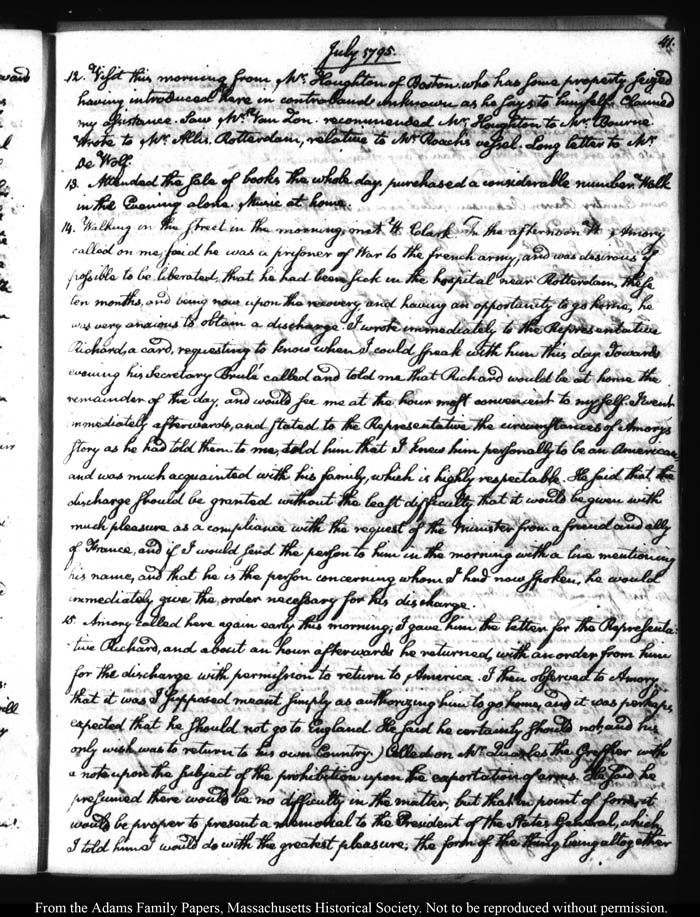 41.
July 1795.
12. Visit this morning from Mr. Houghton of Boston who has some property seized
having introduced here in contraband unknown as he says to himself. Claimed
my assistance. Saw Mr. Van Son. recommended Mr. Houghton to Mr. Bourne.
Wrote to Mr. Allis. Rotterdam, relative to Mr. Roach's vessel. Long letter to Mr.
De Wolf.
13. Attended the sale of books the whole day. purchased a considerable number. Walk
in the Evening alone. Music at home.
14. Walking in the street in the morning, met H. Clark. In the afternoon Amory
called on me; said he was a prisoner of War to the french army, and was desirous if
possible to be liberated, that he had been sick in the hospital near Rotterdam, these
ten months, and being now upon the recovery and having an opportunity to go home, he
was very anxious to obtain a discharge. I wrote immediately to the Representative
Richard, a card, requesting to know when I could speak with him this day. Towards
evening his Secretary Brulé called and told me that Richard would be at home the
remainder of the day, and would see me at the hour most convenient to myself. I went
immediately afterwards, and stated to the Representative the circumstances of Amory's
story as he had told them to me, told him that I knew him personally to be an American
and was much acquainted with his family, which is highly respectable. He said that the
discharge should be granted without the least difficulty, that it would be given with
much pleasure as a compliance with the request of the Minister from a friend and ally
of France, and if I would send the person to him in the morning with a line mentioning
his name, and that he is the person concerning whom I had now spoken, he would
immediately give the order necessary for his discharge.
15. Amory called here again early this morning; I gave him the letter for the Representa-
-tive Richard, and about an hour afterwards he returned, with an order from him
for the discharge with permission to return to America. I then observed to Amory
that it was I supposed meant simply as authorizing him to go home, and it was perhaps
expected that he should not go to England. He said he certainly should not, and his
only wish was to return to his own Country.) Called on Mr. Quarles the Greffier with
a note upon the subject of the prohibition upon the exportation of arms. He said he
presumed there would be no difficulty in the matter, but that in point of form, it
would be proper to present a memorial to the President of the States General, which
I told him I would do with the greatest pleasure; the form of the thing being altogether
From the Adams Family Papers, Massachusetts Historical Society. Not to be reproduced without permission.